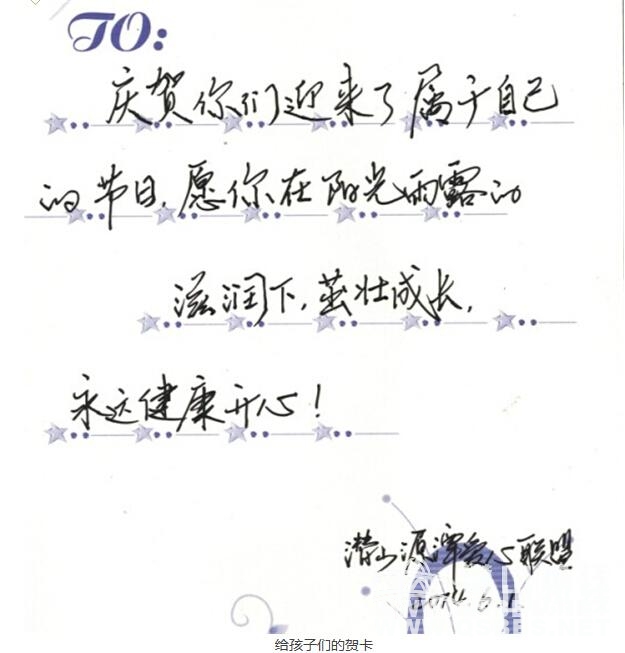 TO:
庆贺你们迎来了属于自己
的节日,愿你在阳光雨露的
滋润下,茁壮成长,
永远健康开心!
潜山源潭爱心联盟
2014.6.1
给孩子们的贺卡